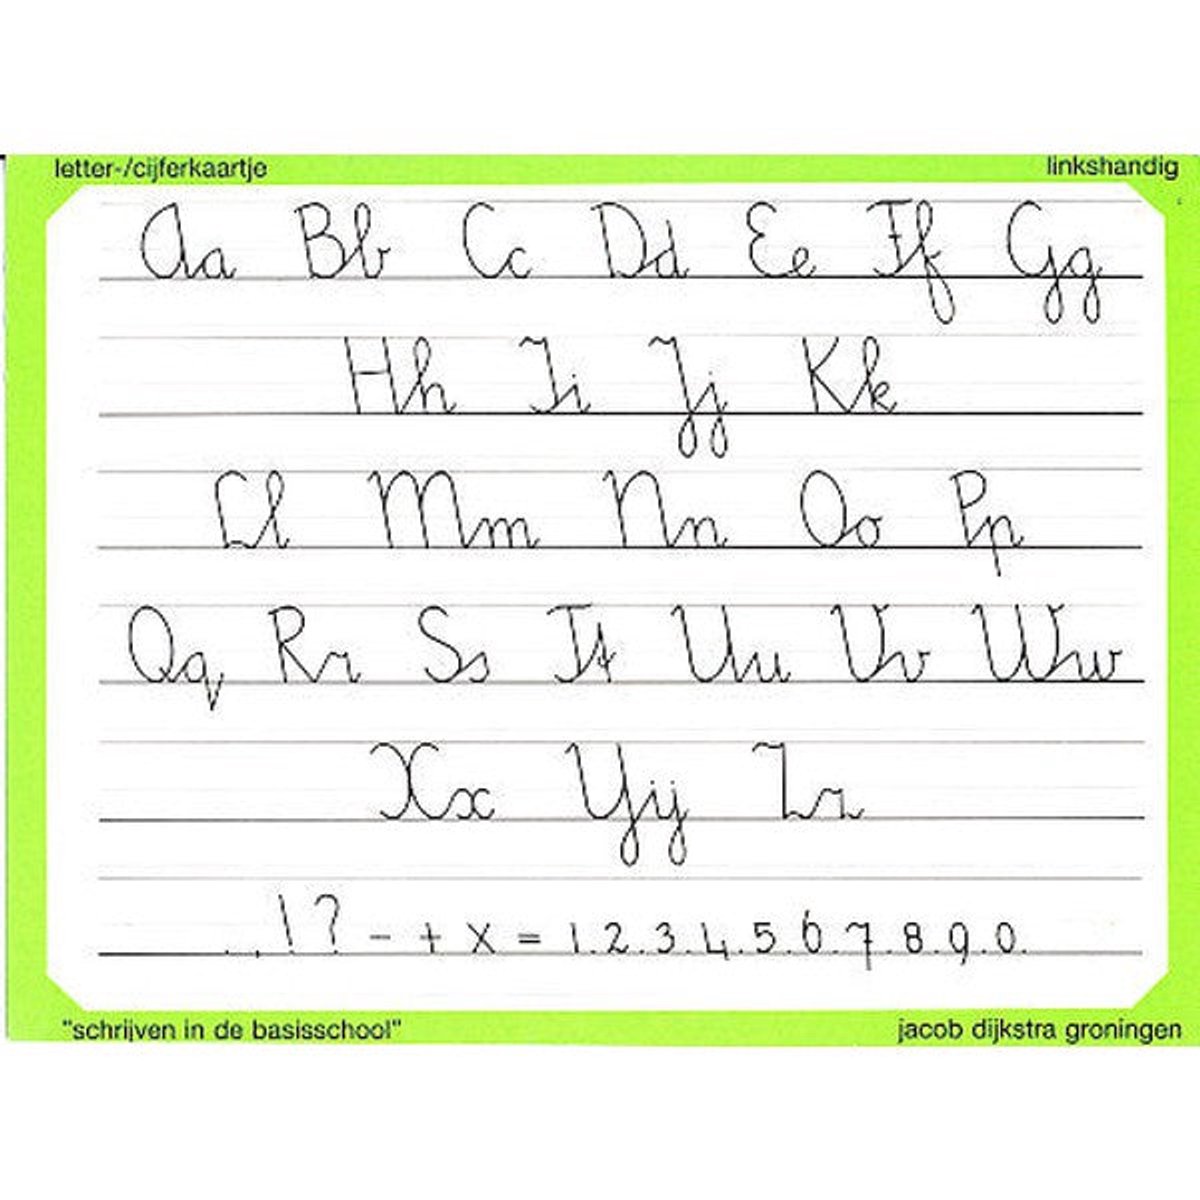 letter-/cijferkaartje linkshandig
Aa Bb Cc Dd Ee Ff Gg
Hh Ii Jj Kk
Ll Mm Nn Oo Pp
Qq Rr Ss Tt Uu Vv Ww
Xx Yij Zz
. , ! ? - + x = 1.2.3.4.5.6.7.8.9.0.
"schrijven in de basisschool" jacob dijkstra groningen